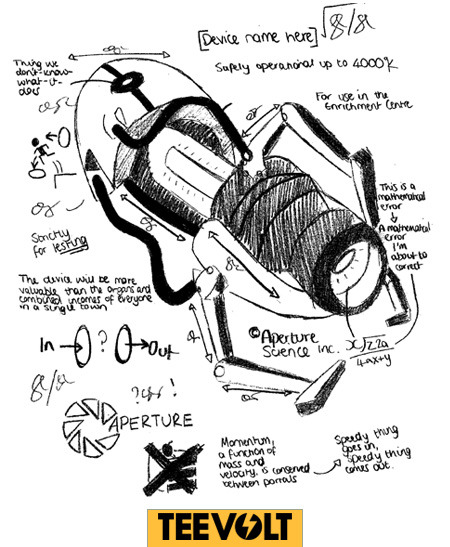 [Device name here]
Safely operational up to 4000°K
Thing we
don't-know-
what-it-
does
For use in the
Enrichment Centre
This is a
mathematical
error
A mathematical
error
I'm
about to
correct
Strictly
for testing
The device will be more
valuable than the organs and
combined incomes of everyone
in a single town
©Aperture
Science Inc.
x√22a
4ax+y
In → ? → Out
APERTURE
Momentum,
a function of
mass and
velocity, is conserved
between portals
Speedy thing
goes in,
speedy thing
comes out.
TEEVOLT